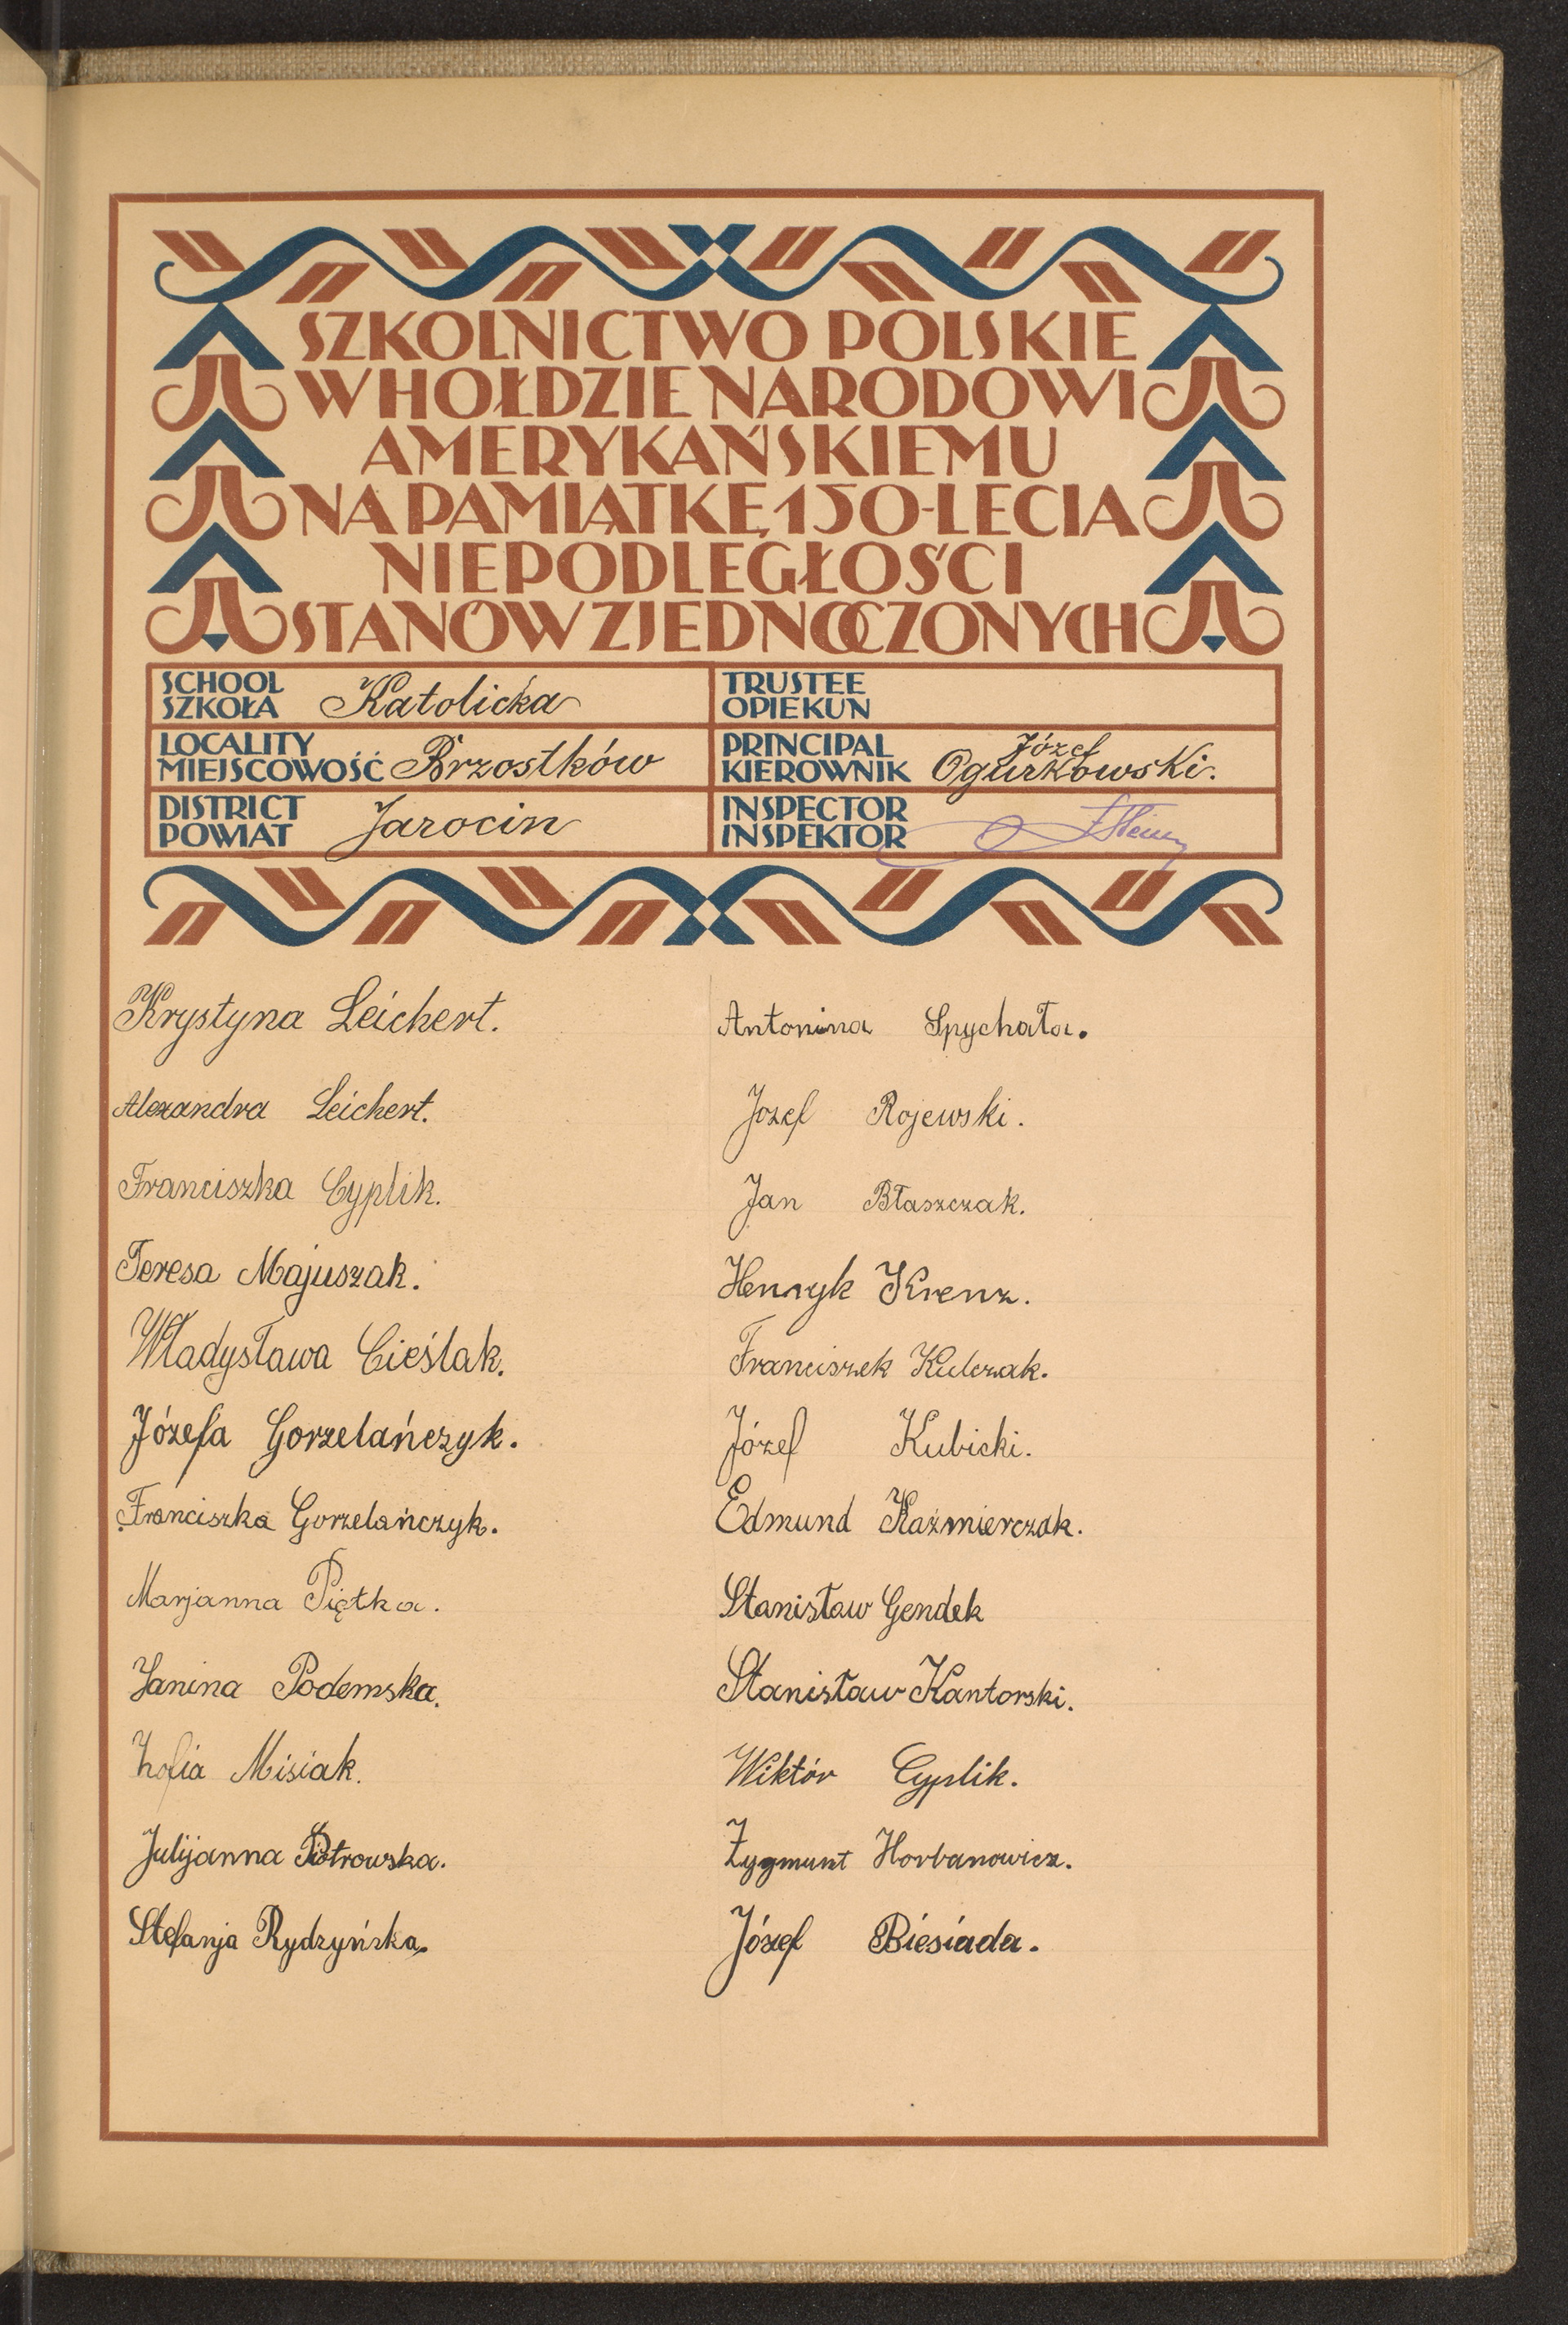 SZKOLNICTWO POLSKIE
W HOŁDZIE NARODOWI
AMERYKAŃSKIEMU
NA PAMIĄTKĘ 150-LECIA
NIEPODLEGŁOŚCI
STANÓW ZJEDNOCZONYCH
SCHOOL
SZKOŁA Katolicka
TRUSTEE
OPIEKUN
LOCALITY
MIEJSCOWOŚĆ Brzostków
PRINCIPAL Józef
KIEROWNIK Ogurkowski.
DISTRICT
POWIAT Jarocin
INSPECTOR
INSPEKTOR
Krystyna Leichert.
Alexandra Leichert.
Franciszka Cyplik.
Teresa Majuszak.
Władysława Cieślak.
Józefa Gorzelańczyk.
Franciszka Gorzelańczyk.
Marjanna Piętka.
Janina Podemska.
Zofia Misiak.
Julijanna Piotrowska.
Stefanja Rydzyńska.
Antonina Spychała.
Jozef Rojewski.
Jan Błaszczak.
Henryk Krenz.
Franciszek Kulczak.
Józef Kubicki.
Edmund Kaźmierczak.
Stanisław Gendek
Stanisław Kantorski.
Wiktór Cyplik.
Zygmunt Horbanowicz.
Józef Biesiada.